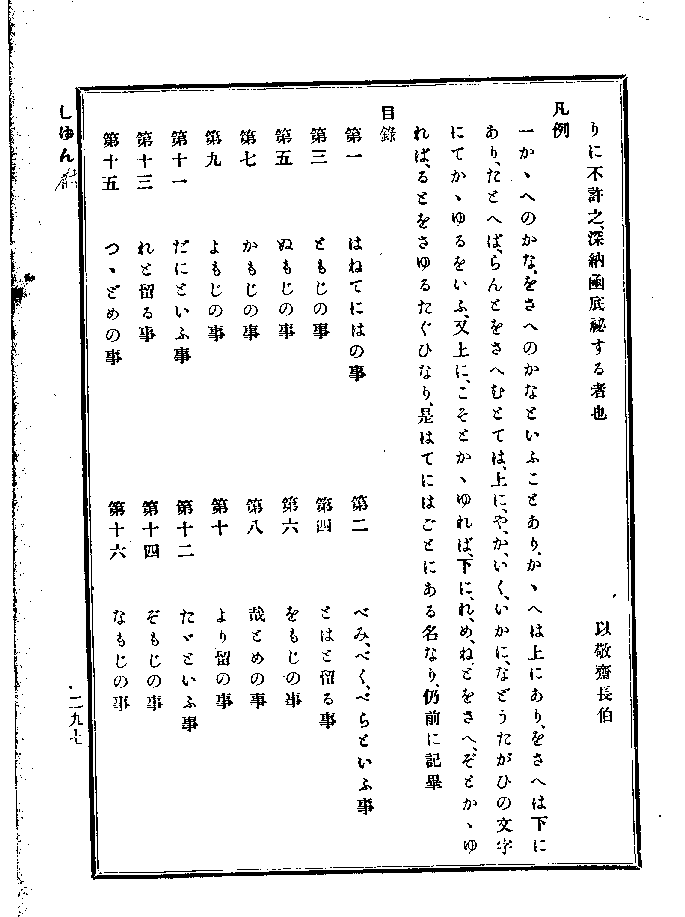 りに不許之、深納凾底祕する者也
以敬齋長伯
凡例
一かゝへのかな、をさへのかなといふことあり、かゝへは上にあり、をさへは下に
あり、たとへば、らんとをさへむとては、上に、や、か、いく、いかに、などうたがひの文字
にてかゝゆるをいふ、又上に、こそとかゝゆれば、下に、れ、め、ねとをさへ、ぞとかゝゆ
れば、るとをさゆるたぐひなり、是はてにはごとにある名なり、仍前に記畢
目錄
第一 はねてにはの事 第二 べみ、べく、べらといふ事
第三 ともじの事 第四 とはと留る事
第五 ぬもじの事 第六 をもじの事
第七 かもじの事 第八 哉とめの事
第九 よもじの事 第十 より留の事
第十一 だにといふ事 第十二 たゞといふ事
第十三 れと留る事 第十四 ぞもじの事
第十五 つゝどめの事 第十六 なもじの事
しゆん
二九七